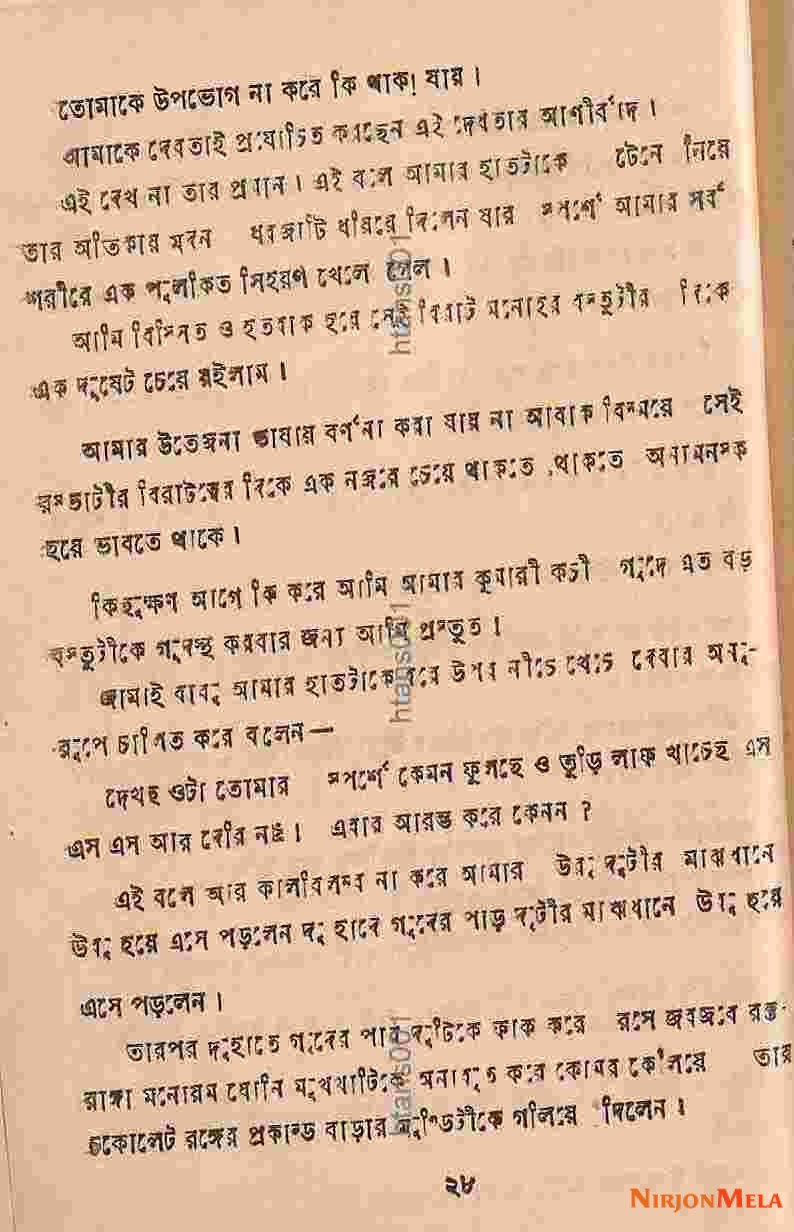 তোমাকে উপভোগ না করে কি থাকা যায়।
আমাকে দেবতাই প্রযোচিত করছেন এই দেবতার আশীর্বাদে।
এই দেখ না তার প্রমান। এই বলে আমার হাতটাকে টেনে নিয়ে
তার অতিকায় মদন ধরজাটি ধরিয়ে দিলেন যার স্পর্শে আমার সর্ব
শরীরে এক পুলকিত সিহরণ খেলে গেল।
আমি বিস্মিত ও হতবাক হয়ে সেই বিরাট মনোহর বস্তুটীর দিকে
এক দৃষ্টে চেয়ে রইলাম।
আমার উতেজনা ভাষায় বর্ণনা করা যায় না আবাক বিস্ময়ে সেই
বিরাটত্বের দিকে এক নজরে চেয়ে থাকতে থাকতে অন্যমনস্ক
হয়ে ভাবতে থাকে।
কিছুক্ষণ আগে কি করে আমি আমার কুমারী কচী গুদে এত বড়
বস্তুটীকে গুদস্থ করবার জন্য আমি প্রস্তুত।
জামাই বাবু আমার হাতটাকে ধরে উপর নীচে খেচে দেবার অনু-
রূপে চালিত করে বলেন—
দেখছ ওটা তোমার স্পর্শে কেমন ফুলছে ও তুড়ি লাফ খাচ্ছে এস
এস এস আর দেরি নয়। এবার আরম্ভ করে কেনন ?
এই বলে আর কালবিলম্ব না করে আমার উরু দুটীর মাঝখানে
উবু হয়ে এসে পড়লেন দু হাবে গুদের পাড় দুটীর মাঝখানে উবু হয়ে
এসে পড়লেন।
তারপর দুহাতে গুদের পার দুটিকে ফাক করে রসে জবজবে রক্ত-
রাঙ্গা মনোরম যোনি মুখখাটিকে অনাবৃত করে কোমর কেলিয়ে তার
চকোলেট রঙ্গের প্রকান্ড বাড়ার মুন্ডিটীকে গলিয়ে দিলেন।
২৮
htans001
htans001
htans001
NIRJONMELA